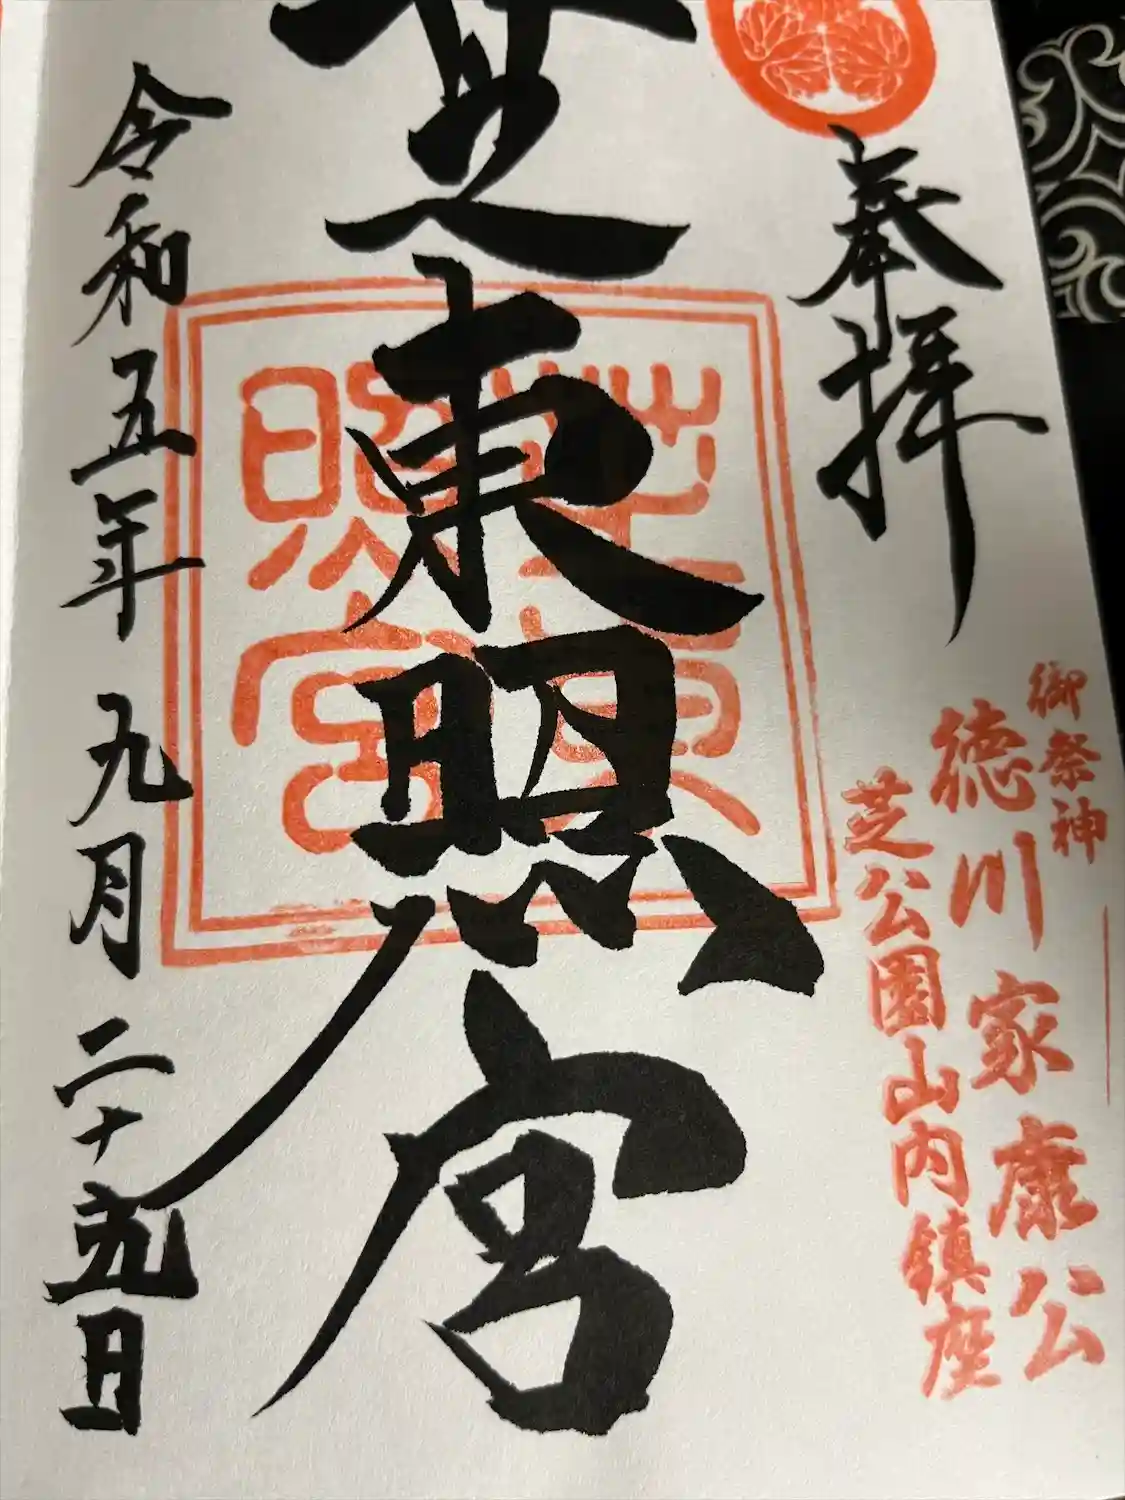 奉拝
御祭神
徳川家康公
芝公園山内鎮座
芝東照宮
芝東
照宮
令和五年九月二十日